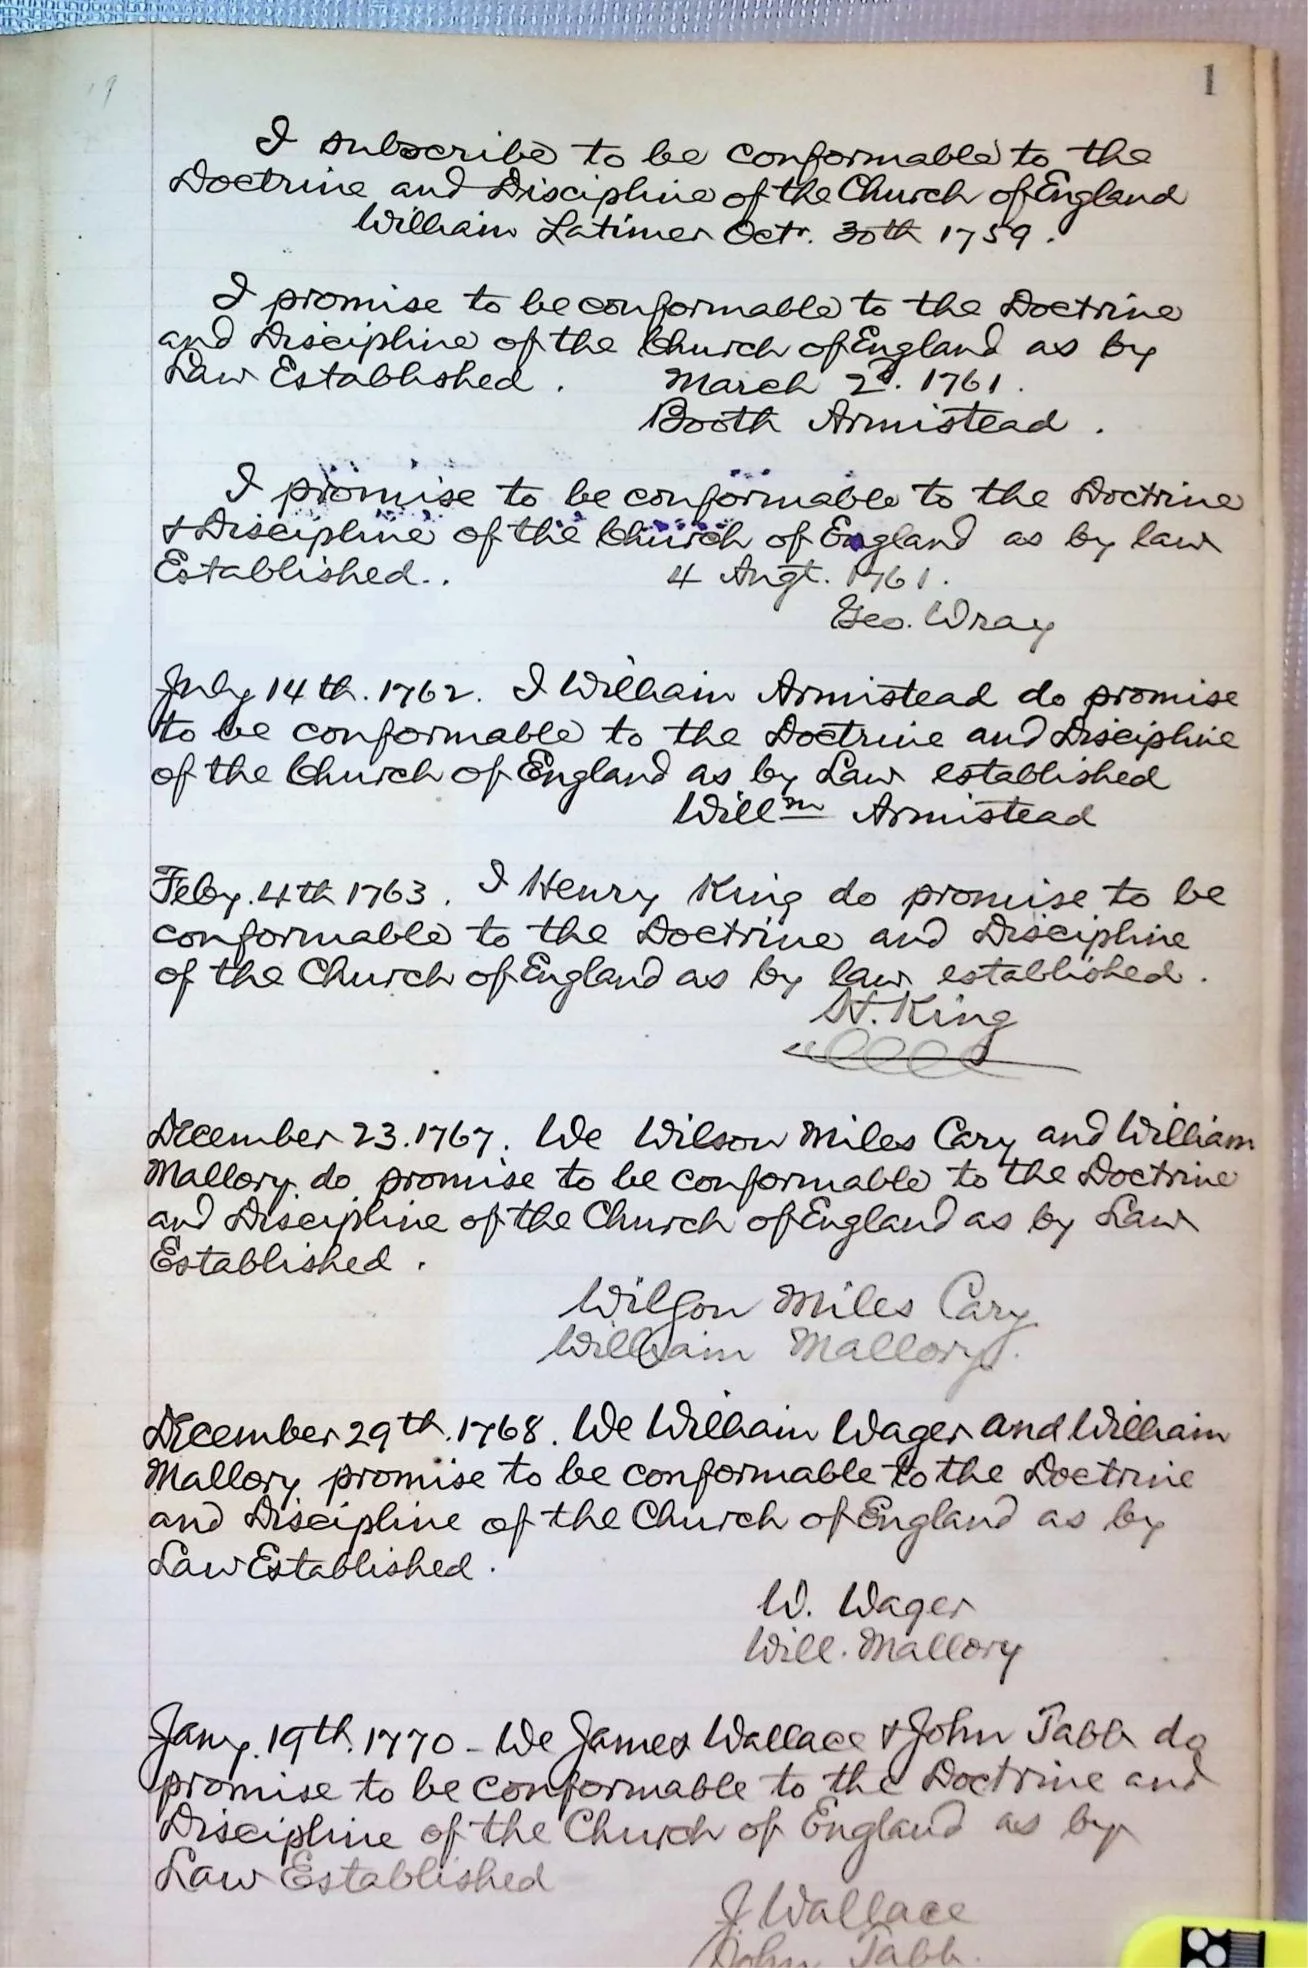 1
I subscribe to be conformable to the
Doctrine and Discipline of the Church of England
William Latimer Octr. 30th 1759.
I promise to be conformable to the Doctrine
and Discipline of the Church of England as by
Law Established. March 2d. 1761.
Booth Armistead.
I promise to be conformable to the Doctrine
& Discipline of the Church of England as by law
Established.. 4 Augt. 1761.
Geo. Wray
July 14th. 1762. I William Armistead do promise
to be conformable to the Doctrine and Discipline
of the Church of England as by Law established
Willm Armistead
Feby. 4th 1763. I Henry King do promise to be
conformable to the Doctrine and Discipline
of the Church of England as by law established.
H. King
December 23. 1767. We Wilson Miles Cary and William
Mallory do promise to be conformable to the Doctrine
and Discipline of the Church of England as by Law
Established.
Wilson Miles Cary
William Mallory.
December 29th. 1768. We William Wager and William
Mallory promise to be conformable to the Doctrine
and Discipline of the Church of England as by
Law Established.
W. Wager
Will. Mallory
Jany. 19th. 1770 - We James Wallace & John Tabb do
promise to be conformable to the Doctrine and
Discipline of the Church of England as by
Law Established
J Wallace
John Tabb.